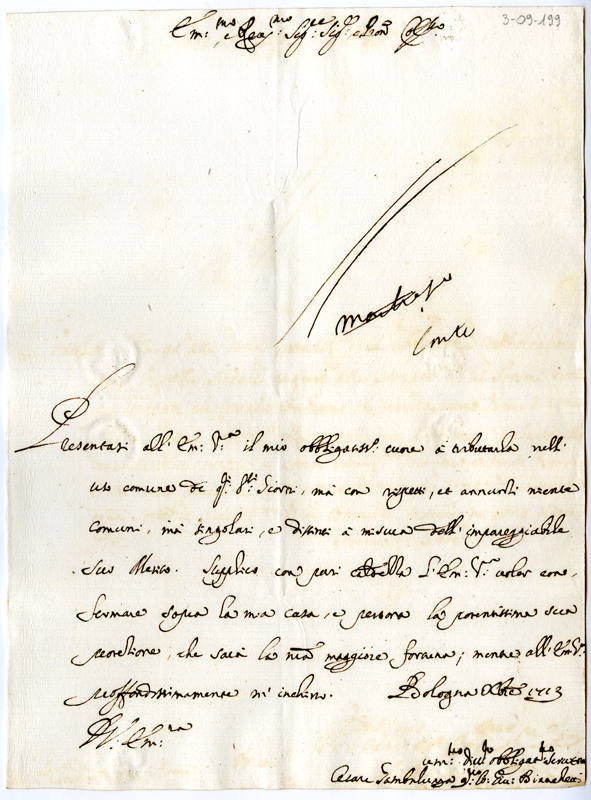 3-09-199
Em:mo e Rev:mo Sig:re Sig: e Pron Col:mo
Conte
Presentasi all' Em: V:a il mio obbligatis:o cuore à tributarla nell'
uso comune di q:i S:ti Giorni, mà con rispetti, et annunzi niente
comuni, mà singolari, e distinti à misura dell' impareggiabile
suo Merito. Supplico con pari L' Em: V:a voler con,
fermare sopra la mia casa, e persona la potentissima sua
protetione, che sarà la mia maggiore fortuna; mentre all' Em: V:a
proffondissimamente m' inchino. Bologna Xbre 1713
D V: Em:za
um:mo div:mo obbligat:mo servitore
Cesare Bianchetti